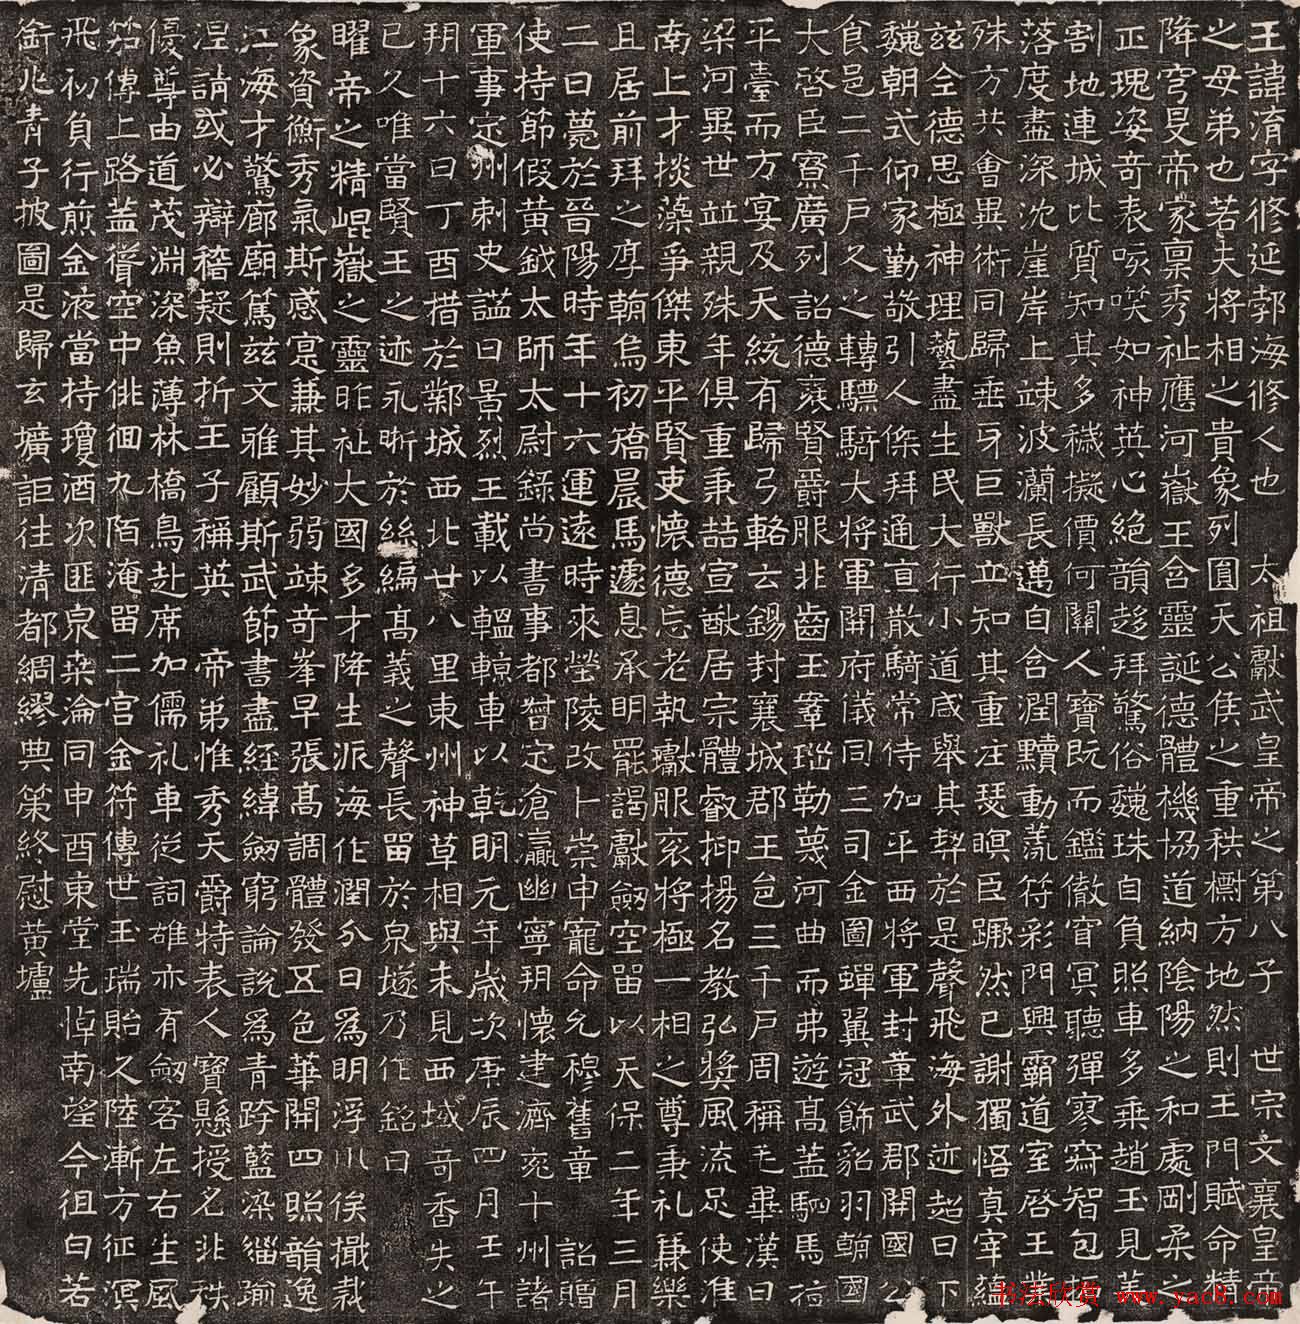 王諱淯字修延郭海修人也　太祖獻武皇帝之第八子　世宗文襄皇帝
之母弟也若夫將相之貴象列圓天公侯之重秩櫛方地然則王門賦命精
降穹旻帝家稟秀祉應河嶽王含靈誕德體機協道納陰陽之和處剛柔之
正瑰姿奇表咳唉如神英心絕韻趍拜驚俗魏珠自負照車多乘趙玉見羞
割地連城比質知其多穢擬價何關人寶既而鑑儌窅冥聽彈寥窅智包
落度盡深沈崖岸上竦波瀾長邁自含潤黷動蕩符彩門興霸道室啓王業
殊方共會異術同歸垂身巨獸立知其重注瑟瞑臣蹶然已謝獨悟真宰
茲全德思極神理藝盡生民大行小道咸舉其契於是聲飛海外迹超日下
魏朝式仰家勤敬引人倏拜通直散騎常侍加平西將軍封章武郡開國公
食邑二千戶久之轉驃騎大將軍開府儀同三司金圖蟬翼冠飾貂羽輔國
大啓臣寮廣列詔德褒賢爵服非齒玉羣瑙勒蔑河曲而弗遊高蓋駟馬
平臺而方宴及天統有歸弓輅云錫封襄城郡王邑三千戶周稱毛畢漢曰
梁河異世並親殊年俱重秉喆宣猷居宗體叡抑揚名教弘獎風流足使准
南上才掞藻爭傑東平賢吏懷德忘老執瓛服袞將極一相之尊秉礼兼樂
且居前拜之厚翰烏初矯晨馬遽息承明罷謁獻劒空留以天保二年三月
二日薨於晉陽時年十六運遠時來塋陵改卜崇申寵命允穆舊章　詔贈
使持節假黃鉞太師太尉錄尚書事都督定滄瀛幽寧朔懷建濟兗十州諸
軍事定州刺史謚曰景烈王載以轀輬車以乾明元年歲次庚辰四月壬午
朔十六日丁酉措於鄴城西北廿八里東州神草相與未見西域奇香失之
已久唯當賢王之迹永晰於絲編高義之聲長留於泉墜乃作銘曰
曜帝之精崐嶽之靈昨祉大國多才降生派海作潤分日為明浮川俟檝裁
象資衡秀氣斯感寔兼其妙弱竦奇峯早張高調體發五色華開四照韻逸
江海才驚廊廟篤茲文雅顧斯武節書盡經緯劒窮論說為青跨藍染緇踰
涅請或必辯稽疑則折王子稱英　帝弟惟秀天爵特表人寶懸授名非秩
優尊由道茂淵深魚薄林橋鳥赴席加儒礼車從詞雄亦有劒客左右生風
笳傳上路蓋聳空中徘徊九陌淹留二宮金符傳世玉瑞貽久陸漸方征溟
飛初負行煎金液當持瓊酒次匪泉桒淪同申酉東堂先悼南望今徂白若
銜兆青子披圖是歸玄壙詎往清都綢繆典策終慰黃壚
书法欣赏 www.yac8.com